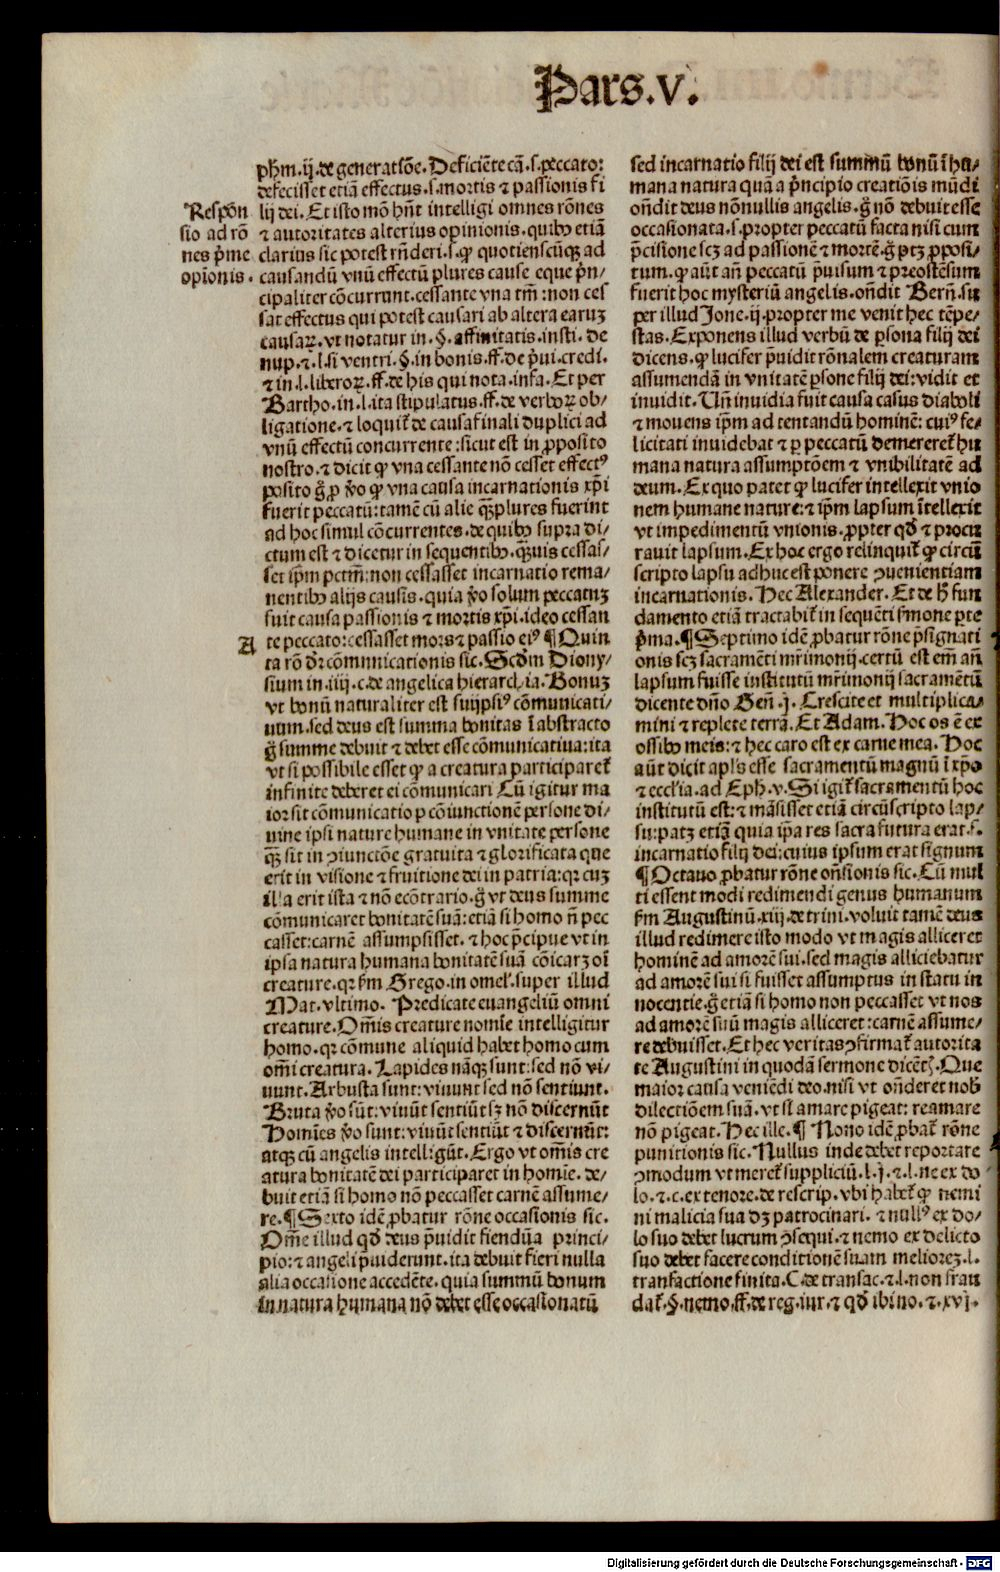 Pars.V.
phm̄.ij.de generatiōe. Deficiēte cā.s.peccato:
defecisset etiā effectus.s.mortis ⁊ passionis fi
lij dei. Et isto mō hn̄t intelligi omnes rōnes
⁊ autoritates alterius opinionis. quibꝰ etiā
clarius sic potest rn̄deri.s. ꝙ quotienscūqꝫ ad
causandū vnū effectū plures cause eque p̄n-
cipaliter cōcurrunt. cessante vna tm̄: non ces
sat effectus qui potest causari ab altera earuꝫ
causaꝝ. vt notatur in.§.affinitatis.insti. de
nup.⁊.l.si ventri.§.in bonis.ff.de p̄ui.credi.
⁊ in.l.liberoꝝ.ff.de his qui nota.infa. Et per
Bartho.in.l.ita stipulatus.ff.de verboꝝ ob/
ligatione.⁊ loquit̄ de causa finali duplici ad
vnū effectū concurrente: sicut est in ꝓposito
nostro.⁊ dicit ꝙ vna cessante nō cesset effectꝰ
posito g̊ ꝓ v̊o ꝙ vna causa incarnationis xp̄i
fuerit peccatū: tamē cū alie qꝫplures fuerint
ad hoc simul cōcurrentes. de quibꝰ supra di/
ctum est ⁊ dicetur in sequentibꝰ. qꝫuis cessas/
set ip̄m pctm̄: non cessasset incarnatio rema/
nentibꝰ alijs causis. quia v̊o solum peccatuꝫ
fuit causa passionis ⁊ mortis xp̄i. ideo cessan
te peccato: cessasset mors ⁊ passio eiꝰ ¶ Quin
ta rō d̄r cōmunicationis sic. Scd̄m Diony/
sium in.iiij.c.de angelica hierarchia. Bonuꝫ
vt bonū naturaliter est suijpsiꝰ cōmunicati/
uum. sed deus est summa bonitas ī abstracto
g̊ summe debuit ⁊ debet esse cōmunicatiua: ita
vt si possibile esset ꝙ a creatura participaret̄
infinite deberet ei cōmunicari Cū igitur ma
ior sit cōmunicatio ꝑ cōiunctionē persone di/
uine ipsi nature humane in vnitate persone
qꝫ sit in ꝯiunctōe gratuita ⁊ glorificata que
erit in visione ⁊ fruitione dei in patria: qꝛ cuꝫ
illa erit ista ⁊ nō ecōtrario. g̊ vt deus summe
cōmunicaret bonitatē suā: etiā si homo n̄ pec
casset: carnē assumpsisset. ⁊ hoc p̄cipue vt in
ipsa natura humana bonitatē suā cōicarꝫ oī
creature. qꝛ ẜm Grego.in omel̓. super illud
Mat. vltimo. Predicate euangeliū omni
creature. Om̄is creature nomīe intelligitur
homo. qꝛ cōmune aliquid habet homo cum
om̄i creatura. Lapides nāqꝫ sunt: sed nō vi/
uunt. Arbusta sunt: viuunt sed nō sentiunt.
Bruta v̊o sūt: viuūt sentiūt sꝫ nō discernūt
Homīes v̊o sunt: viuūt sentiūt ⁊ discernūt:
atqꝫ cū angelis intelligūt. Ergo vt om̄is cre
atura bonitatē dei participaret in homīe. de/
buit etiā si homo nō peccasset carnē assume/
re. ¶ Sexto idē ꝓbatur rōne occasionis sic.
Om̄e illud qd̄ deus p̄uidit fiendūa princi/
pio: ⁊ angeli p̄uiderunt. ita debuit fieri nulla
alia occasione accedēte. quia summū bonum
in natura humana nō debet esse occasionatū
Respōn
sio ad rō
nes p̄me
opīonis.
A
sed incarnatio filij dei est summū bonū ī hu/
mana natura quā a p̄ncipio creatiōis mūdi
on̄dit deus nōnullis angelis. g̊ nō debuit esse
occasionata.s.propter peccatū facta nisi cum
p̄cisione scꝫ ad passionē ⁊ mortē. g̊ pꝫ ꝓposi/
tum. ꝙ aūt an̄ peccatū p̄uisum ⁊ preostēsum
fuerit hoc mysteriū angelis. on̄dit Bern̄.su
per illud Jone.ij. propter me venit hec tēpe/
stas. Exponens illud verbū de ꝑsona filij dei
dicens. ꝙ lucifer p̄uidit rōnalem creaturam
assumendā in vnitatē ꝑsone filij dei: vidit et
inuidit. Un̄ inuidia fuit causa casus diaboli
⁊ mouens ip̄m ad tentandū hominē: cuiꝰ fe/
licitati inuidebat ⁊ ꝑ peccatū demereret̄ hu
mana natura assumptōem ⁊ vnibilitatē ad
deum. Ex quo patet ꝙ lucifer intellexit vnio
nem humane nature: ⁊ ip̄m lapsum ītellexit
vt impedimentū vnionis. ꝓpter qd̄ ⁊ procu
rauit lapsum. Ex hoc ergo relinquit̄ ꝙ circū
scripto lapsu adhuc est ponere ꝯuenientiam
incarnationis. Hec Alexander. Et de h̄ fun
damento etiā tractabit̄ in sequēti ẜmone ꝑte
p̄ma. ¶ Septimo idē ꝓbatur rōne p̄signati
onis scꝫ sacramēti mr̄imonij. certū est em̄ an̄
lapsum fuisse institutū mr̄imonij sacramētū
dicente dn̄o Gen̄.j. Crescite et multiplica/
mini ⁊ replete terrā. Et Adam. Hoc os ē ex
ossibꝰ meis: ⁊ hec caro est ex carne mea. Hoc
aūt dicit apl̓s esse sacramentū magnū ī xp̄o
⁊ ecclīa. ad Eph.v. Si igit̄ sacramentū hoc
institutū est: ⁊ māsisset etiā circūscripto lap/
su: patꝫ etiā quia ip̄a res sacra futura erat.s.
incarnatio filij dei: cuius ipsum erat signum
¶ Octauo ꝓbatur rōne on̄sionis sic. Cū mul
ti essent modi redimendi genus humanum
ẜm Augustinū.xiij.de trini. voluit tamē deus
illud redimere isto modo vt magis alliceret
hominē ad amorē sui. sed magis alliciebatur
ad amorē sui si fuisset assumptus in statu in
nocentie. g̊ etiā si homo non peccasset vt nos
ad amorē suū magis alliceret: carnē assume/
re debuisset. Et hec veritas ꝯfirmat̄ autorita
te Augustini in quodā sermone dicēt̄. Que
maior causa veniēdi deo. nisi vt on̄deret nob̄
dilectiōem suā. vt si amare pigeat: reamare
nō pigeat. Hec ille. ¶ Nono idē ꝓbat̄ rōne
punitionis sic. Nullus inde debet reportare
ꝯmodum vt meret̄ suppliciū.l.j.⁊.l.ne ex do
lo.⁊.c.ex tenore.de rescrip. vbi habet̄ ꝙ nemi
ni malicia sua dꝫ patrocinari. ⁊ nullꝰ ex do/
lo suo debet lucrum ꝯsequi. ⁊ nemo ex delicto
suo debet facere conditionē suam meliorez.l.
transactione finita.C.de transac.⁊.l.non frau
dat̄.§.nemo.ff.de reg.iur.⁊ qd̄ ibi no.⁊.xvj.
Digitalisierung gefördert durch die Deutsche Forschungsgemeinschaft - DFG